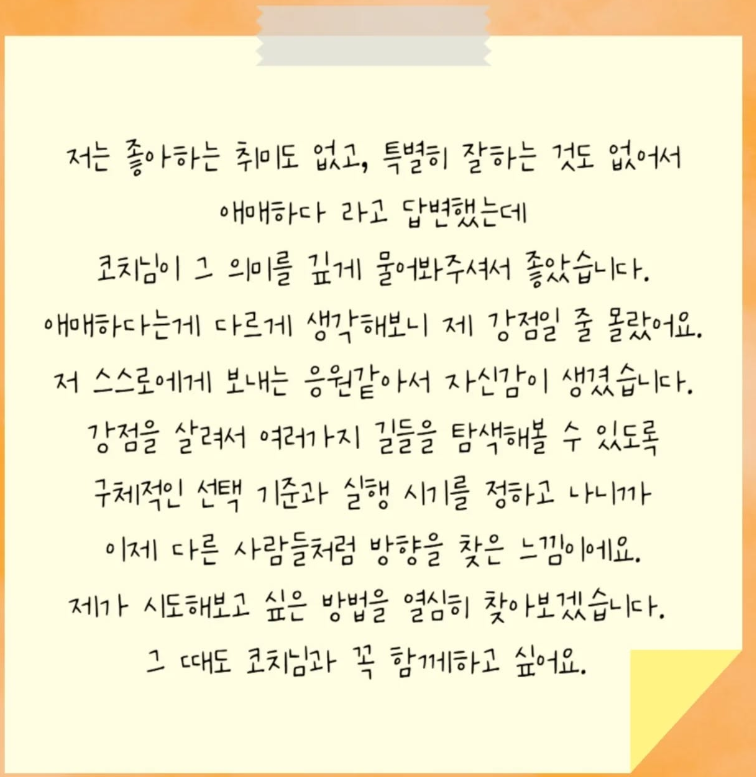 저는 좋아하는 취미도 없고, 특별히 잘하는 것도 없어서
애매하다 라고 답변했는데
코치님이 그 의미를 깊게 물어봐주셔서 좋았습니다.
애매하다는게 다르게 생각해보니 제 강점일 줄 몰랐어요.
저 스스로에게 보내는 응원같아서 자신감이 생겼습니다.
강점을 살려서 여러가지 길들을 탐색해볼 수 있도록
구체적인 선택 기준과 실행 시기를 정하고 나니까
이제 다른 사람들처럼 방향을 찾은 느낌이에요.
제가 시도해보고 싶은 방법을 열심히 찾아보겠습니다.
그 때도 코치님과 꼭 함께하고 싶어요.